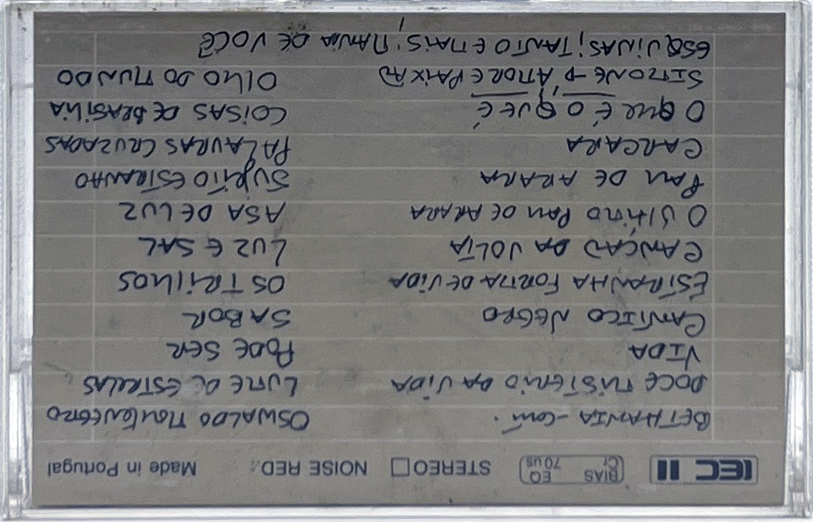 IEC II BIAS Cr EQ 70us STEREO NOISE RED.: Made in Portugal
BETHANIA - cont.
DOCE MISTERIO DA VIDA
VIDA
CANTICO NEGRO
ESTRANHA FORMA DE VIDA
CANÇÃO DA VOLTA
O ÚLTIMO PAU DE ARARA
PAU DE ARARA
CARCARA
O QUE É O QUE É
SIMONE → ATOR E PAIXÃO
ESQUINAS; TANTO E MAIS; MANIA DE VOCÊ
OSWALDO MONTENEGRO
LUME DE ESTRELAS
PODE SER
SABOR
OS TRILHOS
LUZ E SAL
ASA DE LUZ
SUJEITO ESTRANHO
PALAVRAS CRUZADAS
COISAS DE BRASÍLIA
OLHO DO MUNDO